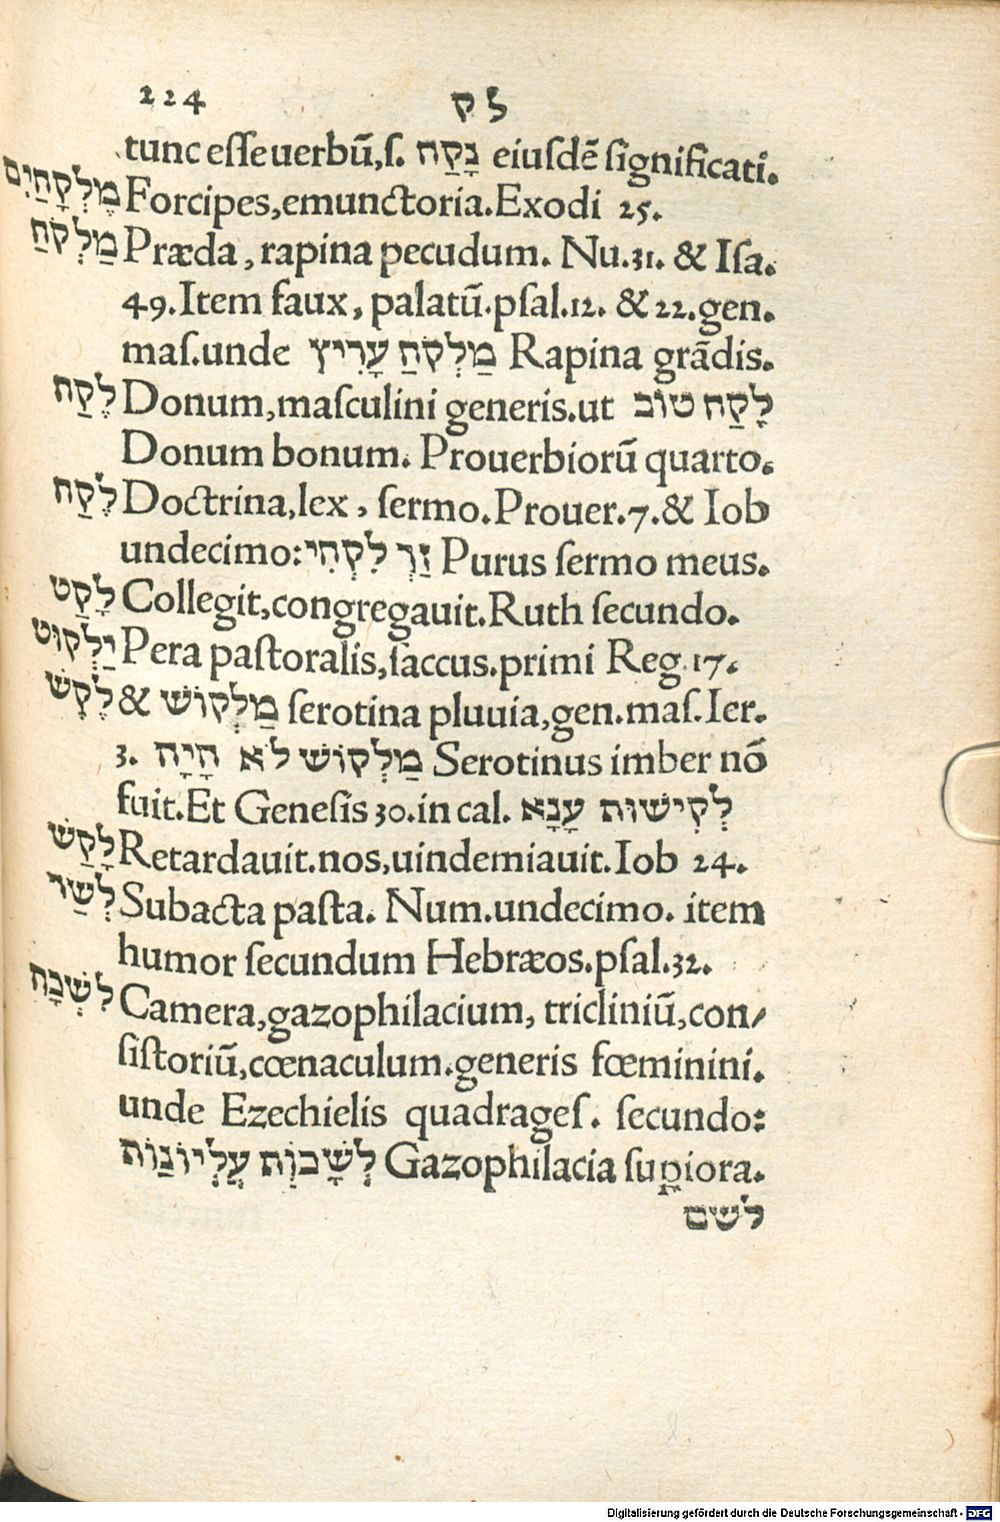 224 לק
tunc esse uerbũ,s. נָקַח eiusdẽ significati.
מֶלְקָחַיִם Forcipes,emunctoria.Exodi 25.
מַלְקֹחַ Præda, rapina pecudum. Nu.31. & Isa.
49.Item faux, palatũ.psal.12. & 22.gen.
mas.unde מַלְקֹחַ עָרִיץ Rapina grãdis.
לֶקַח Donum,masculini generis.ut לֶקַח טוֹב
Donum bonum. Prouerbiorũ quarto.
לֶקַח Doctrina,lex, sermo.Prouer.7.& Iob
undecimo: זַךְ לִקְחִי Purus sermo meus.
לָקַט Collegit,congregauit.Ruth secundo.
יַלְקוּט Pera pastoralis,saccus.primi Reg.17.
לֶקֶשׁ & מַלְקוֹשׁ serotina pluuia,gen.mas.Ier.
3. מַלְקוֹשׁ לֹא הָיָה Serotinus imber nõ
fuit.Et Genesis 30.in cal. לְקִישׁוּת עָנָא
לָקַשׁ Retardauit.nos,uindemiauit.Iob 24.
לְשַׁד Subacta pasta. Num.undecimo. item
humor secundum Hebræos.psal.32.
לִשְׁכָּה Camera,gazophilacium, tricliniũ,con/
sistoriũ,cœnaculum.generis fœminini.
unde Ezechielis quadrages. secundo:
לְשָׁכוֹת עֶלְיוֹנוֹת Gazophilacia suꝑiora.
לשם
Digitalisierung gefördert durch die Deutsche Forschungsgemeinschaft - DFG